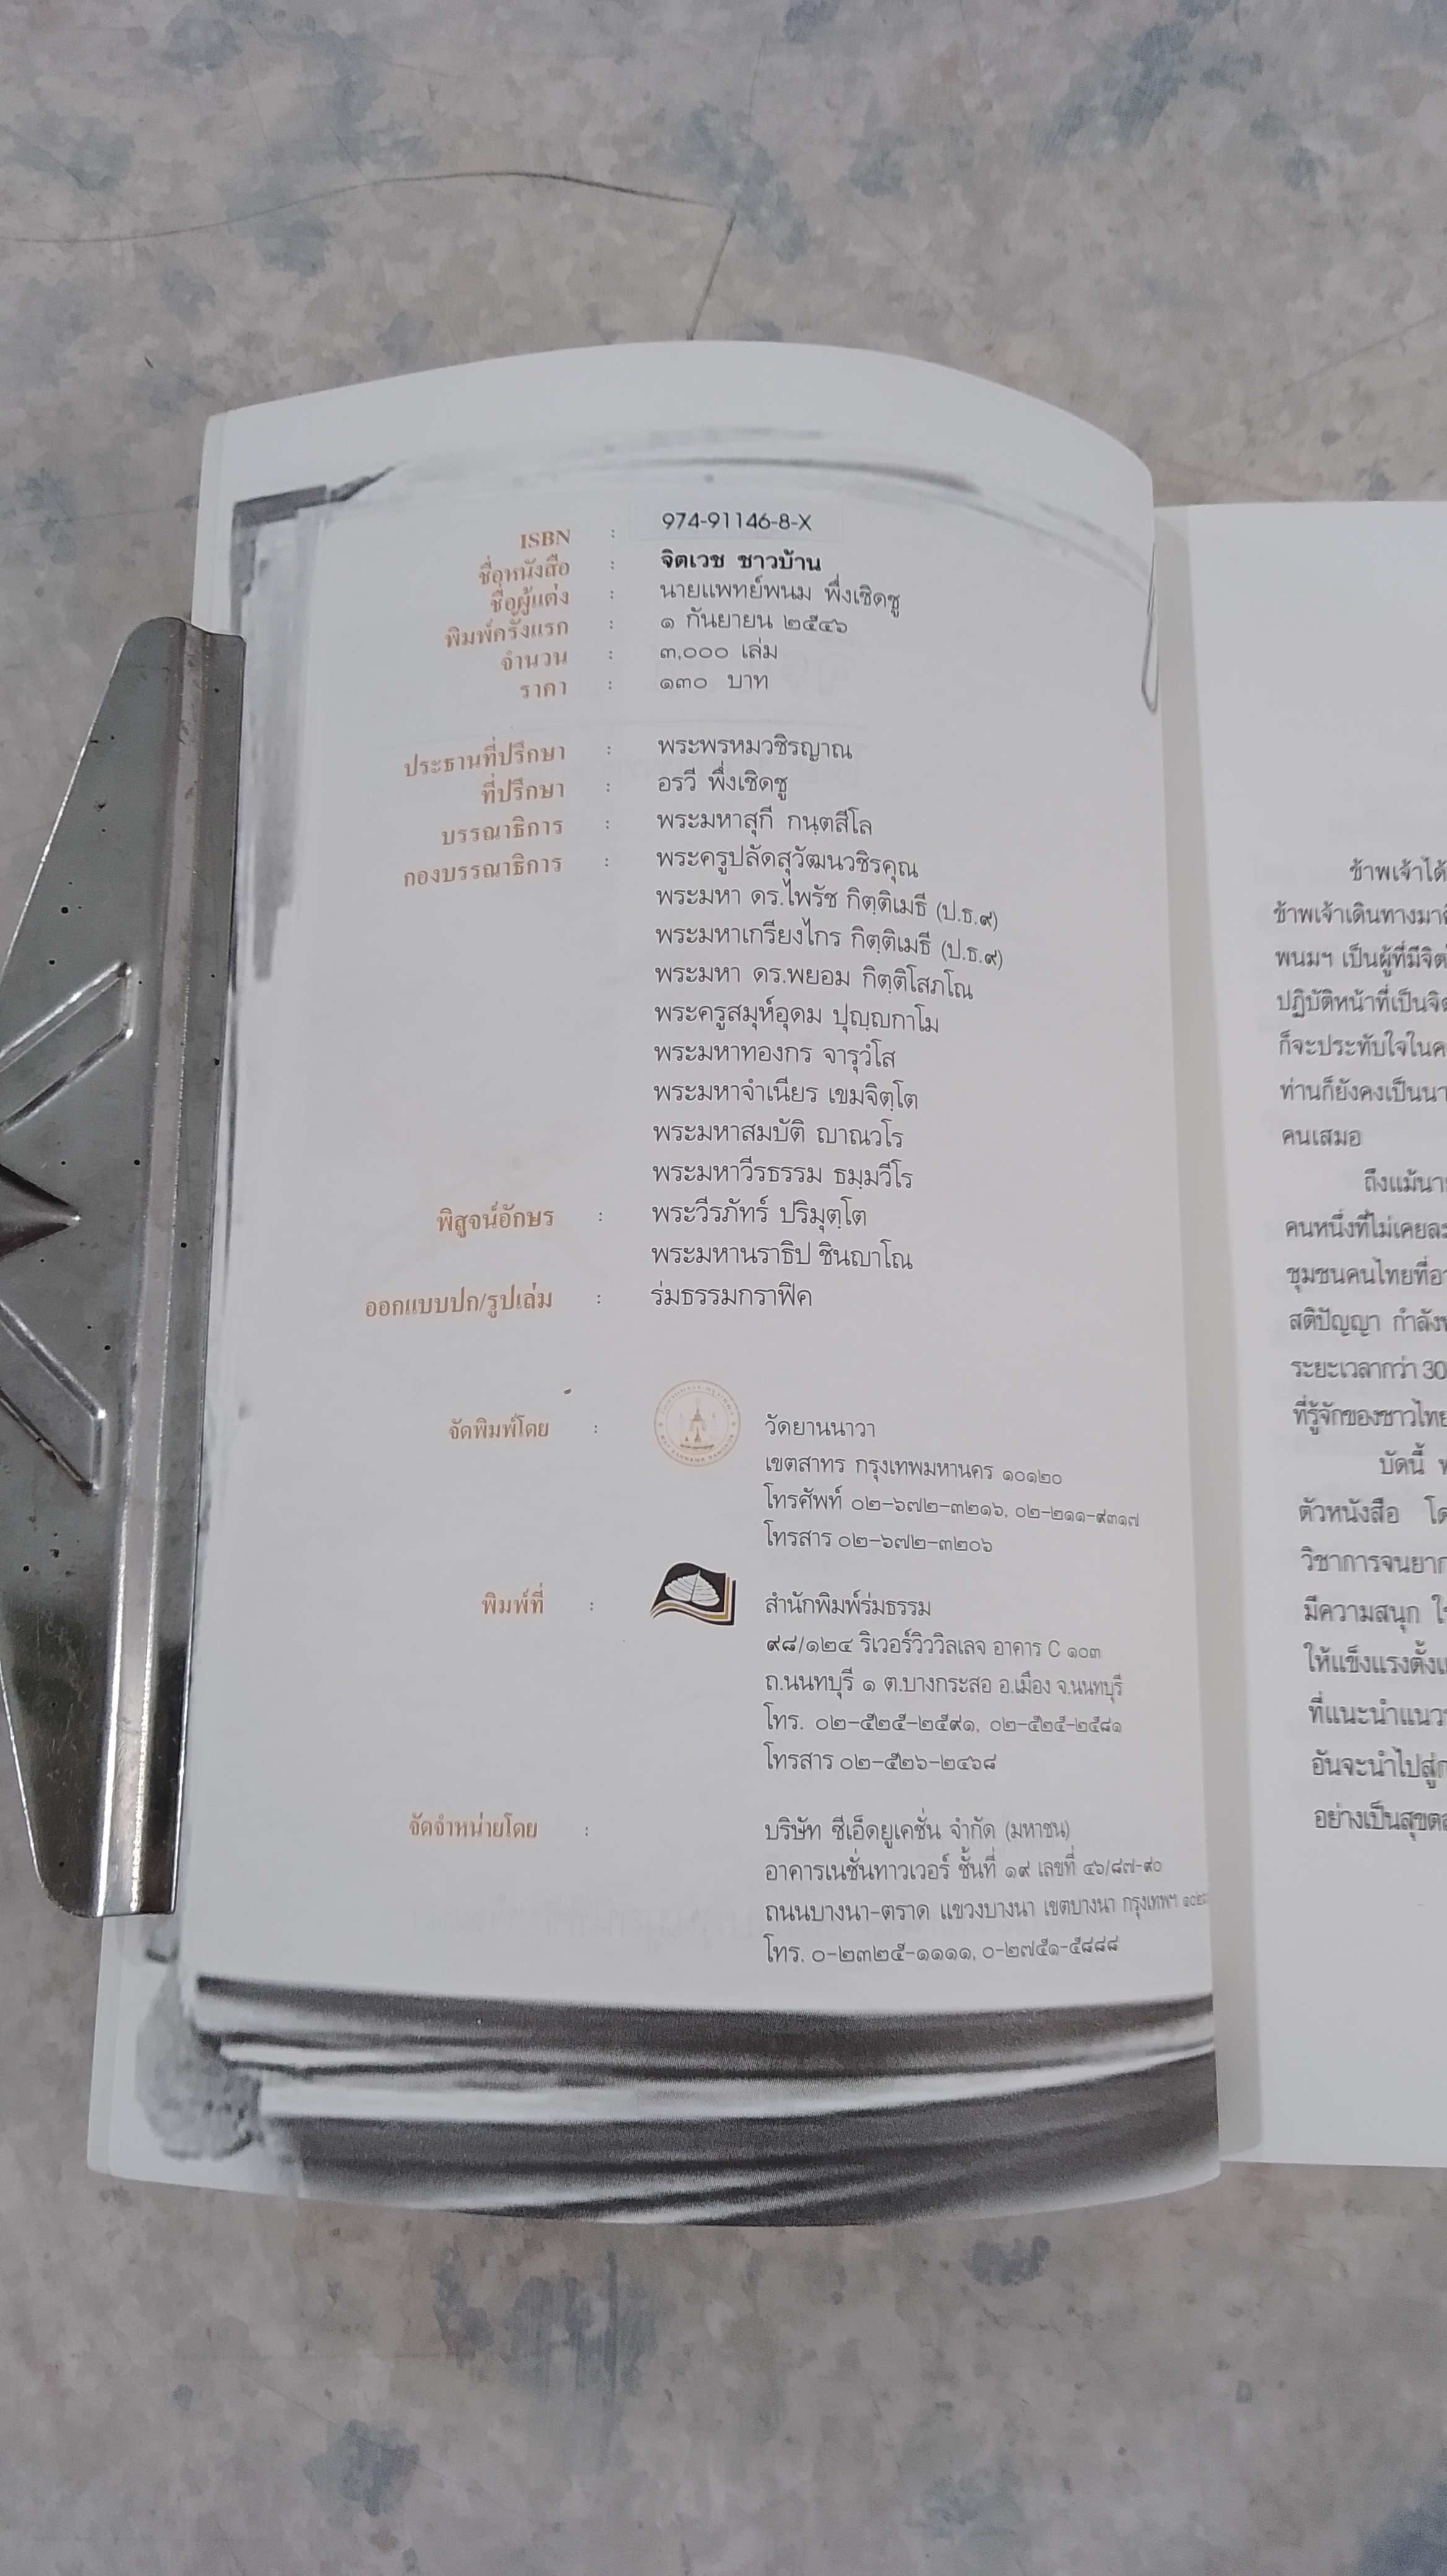 ISBN : 974-91146-8-X
ชื่อหนังสือ : จิตเวช ชาวบ้าน
ชื่อผู้แต่ง : นายแพทย์พนม พึ่งเชิดชู
พิมพ์ครั้งแรก : ๑ กันยายน ๒๕๔๖
จำนวน : ๓,๐๐๐ เล่ม
ราคา : ๑๓๐ บาท
ประธานที่ปรึกษา : พระพรหมวชิรญาณ
ที่ปรึกษา : อรวี พึ่งเชิดชู
บรรณาธิการ : พระมหาสุกี กนฺตสีโล
กองบรรณาธิการ : พระครูปลัดสุวัฒนวชิรคุณ
พระมหา ดร.ไพรัช กิตฺติเมธี (ป.ธ.๙)
พระมหาเกรียงไกร กิตฺติเมธี (ป.ธ.๙)
พระมหา ดร.พยอม กิตฺติโสภโณ
พระครูสมุห์อุดม ปุญฺญกาโม
พระมหาทองกร จารุวํโส
พระมหาจำเนียร เขมจิตฺโต
พระมหาสมบัติ ญาณวโร
พระมหาวีรธรรม ธมฺมวีโร
พิสูจน์อักษร : พระวีรภัทร์ ปริมุตฺโต
พระมหานราธิป ชินญาโณ
ออกแบบปก/รูปเล่ม : ร่มธรรมกราฟิค
จัดพิมพ์โดย : วัดยานนาวา
เขตสาทร กรุงเทพมหานคร ๑๐๑๒๐
โทรศัพท์ ๐๒-๖๗๒-๓๒๑๖, ๐๒-๒๑๑-๙๓๑๗
โทรสาร ๐๒-๖๗๒-๓๒๐๖
พิมพ์ที่ : สำนักพิมพ์ร่มธรรม
๙๘/๑๒๔ ริเวอร์วิววิลเลจ อาคาร C ๑๐๓
ถ.นนทบุรี ๑ ต.บางกระสอ อ.เมือง จ.นนทบุรี
โทร. ๐๒-๕๒๕-๒๕๙๑, ๐๒-๕๒๕-๒๕๘๑
โทรสาร ๐๒-๕๒๖-๒๔๖๘
จัดจำหน่ายโดย : บริษัท ซีเอ็ดยูเคชั่น จำกัด (มหาชน)
อาคารเนชั่นทาวเวอร์ ชั้นที่ ๑๙ เลขที่ ๔๖/๘๗-๙๐
ถนนบางนา-ตราด แขวงบางนา เขตบางนา กรุงเทพฯ
โทร. ๐-๒๓๒๕-๑๑๑๑, ๐-๒๗๕๑-๕๘๘๘
ข้าพเจ้าได้
ข้าพเจ้าเดินทางมา
พนมฯ เป็นผู้ที่มีจิต
ปฏิบัติหน้าที่เป็นจิต
ก็จะประทับใจในค
ท่านก็ยังคงเป็นนา
คนเสมอ
ถึงแม้นา
คนหนึ่งที่ไม่เคยละ
ชุมชนคนไทยที่อา
สติปัญญา กำลัง
ระยะเวลากว่า 30
ที่รู้จักของชาวไทย
บัดนี้
ตัวหนังสือ โด
วิชาการจนยาก
มีความสนุก
ให้แข็งแรงตั้งแ
ที่แนะนำแนว
อันจะนำไปสู่
อย่างเป็นสุขต